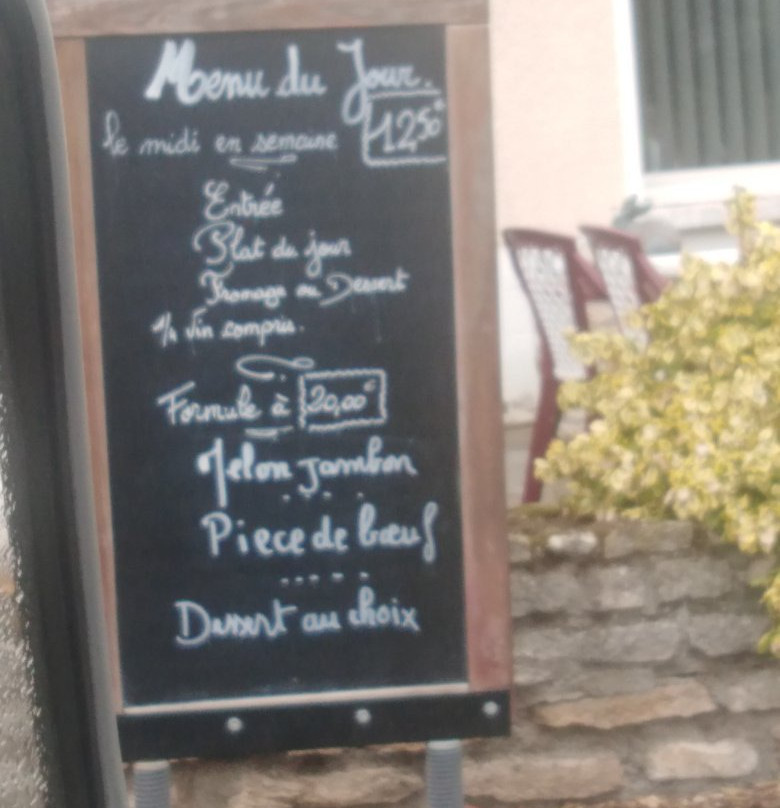 Menu du Jour.
le midi en semaine 12,50€
Entrée
Plat du jour
Fromage ou Dessert
1/4 Vin compris.
Formule à 20,00€
Melon Jambon
Piece de bœuf
Dessert au choix